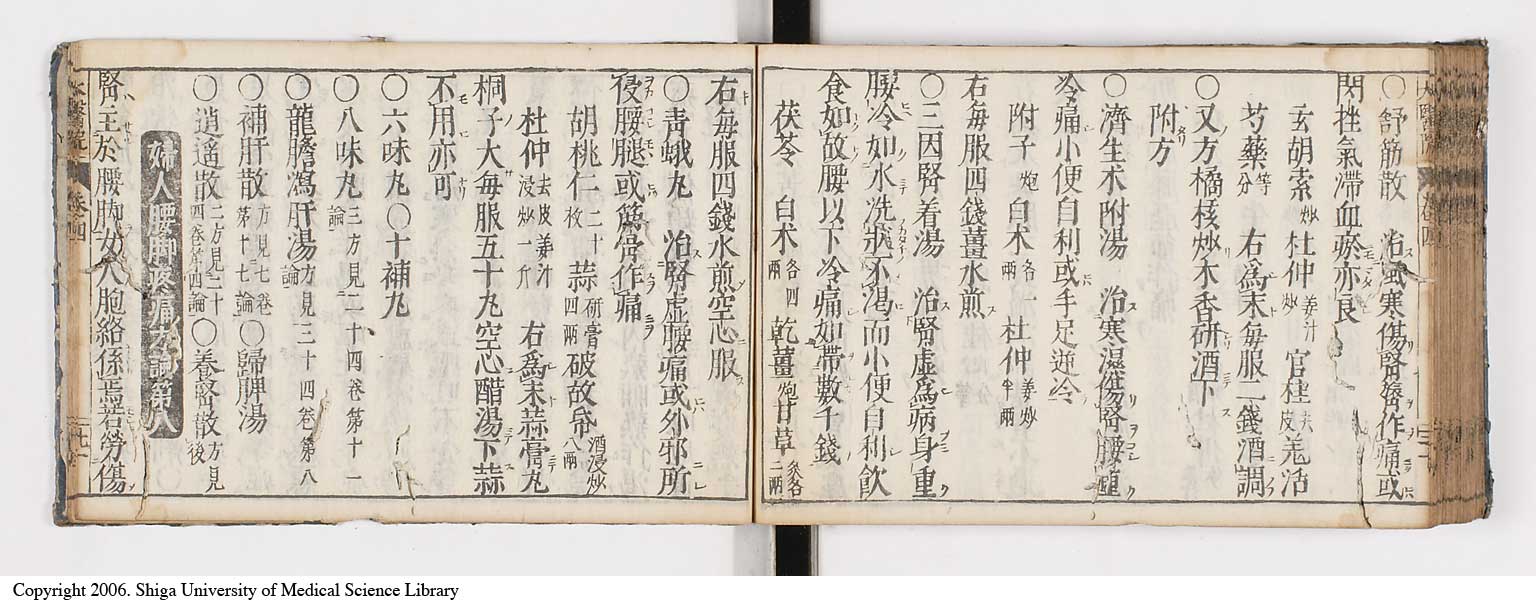 ○舒筋散 治風寒傷腎臍作痛或
閃挫氣滯血瘀亦良
玄胡索炒 杜仲姜汁炒 官桂去皮 羗活
芍藥等分 右爲末每服二錢酒調
○又方橘核炒木香研酒下
附方
○濟生术附湯 治寒濕傷腎腰重
冷痛小便自利或手足逆冷
附子炮 白术各一兩 杜仲姜炒半兩
右每服四錢薑水煎
○三因腎着湯 治腎虛爲病身重
腰冷如水洗狀不渴而小便自利飲
食如故腰以下冷痛如帶數千錢
茯苓 白术各四兩 乾薑炮 甘草炙各二兩
右每服四錢水煎空心服
○青蛾丸 治腎虛腰痛或外邪所
侵腰腿或筋骨作痛
胡桃仁二十枚 蒜研膏四兩 破故帋酒浸炒八兩
杜仲去皮姜汁浸炒一斤 右爲末蒜膏丸
桐子大每服五十丸空心醋湯下蒜
不用亦可
○六味丸○十補丸
○八味丸三方見二十四卷第十一論
○龍膽瀉肝湯方見三十四卷第八論
○補肝散方見七卷第十七論○歸脾湯
○逍遙散二方見二十四卷第四論○養腎散方見後
婦人腰脚疼痛方論第八
腎主於腰脚女人胞絡係焉若勞傷
Copyright 2006. Shiga University of Medical Science Library